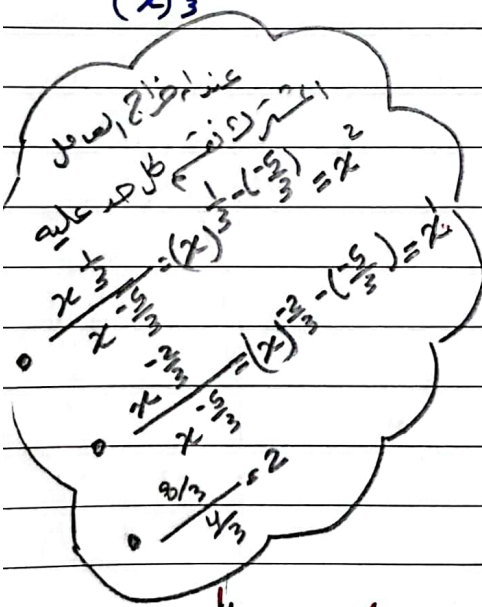 (x) 3
عند إخراج العامل
المشترك نقسم كل حد عليه
• x^{1/3} / x^{-5/3} = (x)^{1/3 - (-5/3)} = x^2
• x^{-2/3} / x^{-5/3} = (x)^{-2/3 - (-5/3)} = x^1
• 8/3 / 4/3 = 2